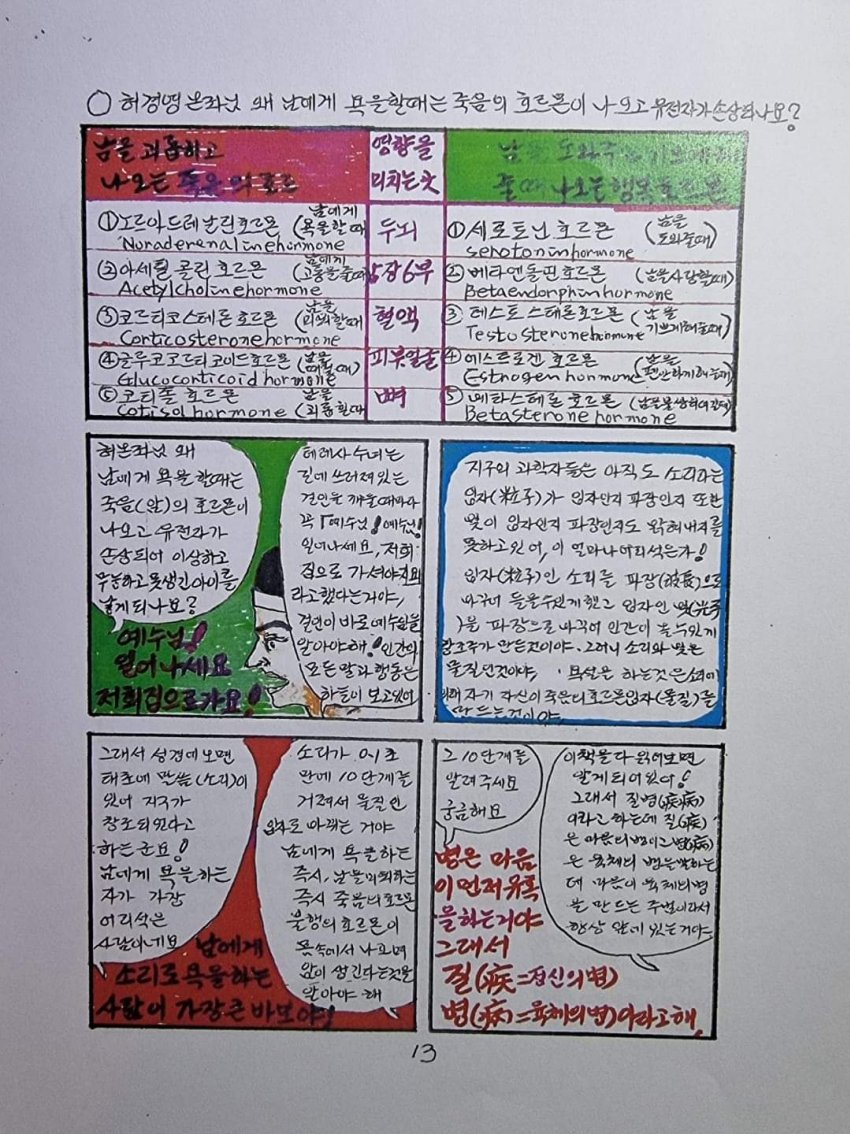 ○ 허경영 본좌님 왜 남에게 욕을할때는 죽음의 호르몬이 나오고 유전자가 손상되나요?
남을 괴롭히고
나오는 죽음의 호르
영향을
미치는 곳
남을 도와주
줄때 나오는 행복호르몬
①노르아드레날린호르몬 (남에게 욕을할때
Noradrenalinehormone
두뇌
①세로토닌 호르몬 (남을 도와줄때)
serotoninhormone
②아세틸 콜린 호르몬 (남에게 고통을줄때
Acetylcholinehormone
5장6부
②베타엔돌핀호르몬 (남을사랑할때)
Betaendorphinhormone
③코르티코스테론호르몬 (남을 미워할때
Corticosteronehormone
혈액
③테스토스테론호르몬 (남을 기쁘게해줄때)
Testosteronehormone
④글루코코르티코이드호르몬 (남을 때릴때)
Glucocorticoid hormone
피부얼굴
④에스트로겐 호르몬 (남을 편안하게해줄때)
Estrogen hormone
⑤코티졸 호르몬 (남을 괴롭힐때
Cotisol hormone
뼈
⑤베타스테론 호르몬 (남을불쌍히여길때)
Betasterone hormone
허본좌님 왜
남에게 욕을할때는
죽음(암)의 호르몬이
나오고 유전자가
손상되어 이상하고
무능하고못생긴아이를
낳게되나요?
예수님!
일어나세요
저희집으로가요!
테레사 수녀는
길에 쓰러져있는
걸인을 깨울때마다
꼭 「예수님! 예수님!
일어나세요, 저희
집으로 가셔야지요
라고했다는거야,
걸인이 바로예수님을
알아야해! 인간의
모든말과행동은
하늘이 보고있어
지구의 과학자들은 아직도 소리라는
입자(粒子)가 입자인지 파장인지 또한
빛이 입자인지 파장인지도 밝혀내지를
못하고있어, 이 얼마나어리석은가!
입자(粒子)인 소리를 파장(波長)으로
바꾸어 들을수있게했고 입자인 빛(光子
)을 파장으로바꾸어 인간이 볼수있게
창조주가 만든것이야. 그러니 소리와 빛은
물질인것이야, 욕설은 하는것은
해 자기 자신이 죽음의호르몬입자(물질)를
만드는것이야.
그래서 성경에보면
태초에 말씀(소리)이
있어 지구가
창조되었다고
하는군요!
남에게 욕을하는
자가 가장
어리석은
사람이네요
남에게
소리로 욕을하는
사람이 가장큰바보야!
소리가 0.1초
만에 10단계를
거쳐서 물질인
입자로 바뀌는 거야
남에게 욕을하는
즉시, 남을미워하는
즉시 죽음의호르몬
불행의 호르몬이
몸속에서 나오며
암이 생긴다는것을
알아야 해
그10단계를
알려주세요
궁금해요
이책을다읽어보면
알게되어있어!
그래서 질병(疾病)
이라고 하는데 질(疾)
은 마음의병이고병(病)
은 육체의 병을말하는
데 마음이 육체의병
을 만드는 주범이라서
항상 앞에있는거야.
병은 마음
이먼저유혹
을하는거야
그래서
질(疾=정신의병)
병(病=육체의병)이라고해.
13